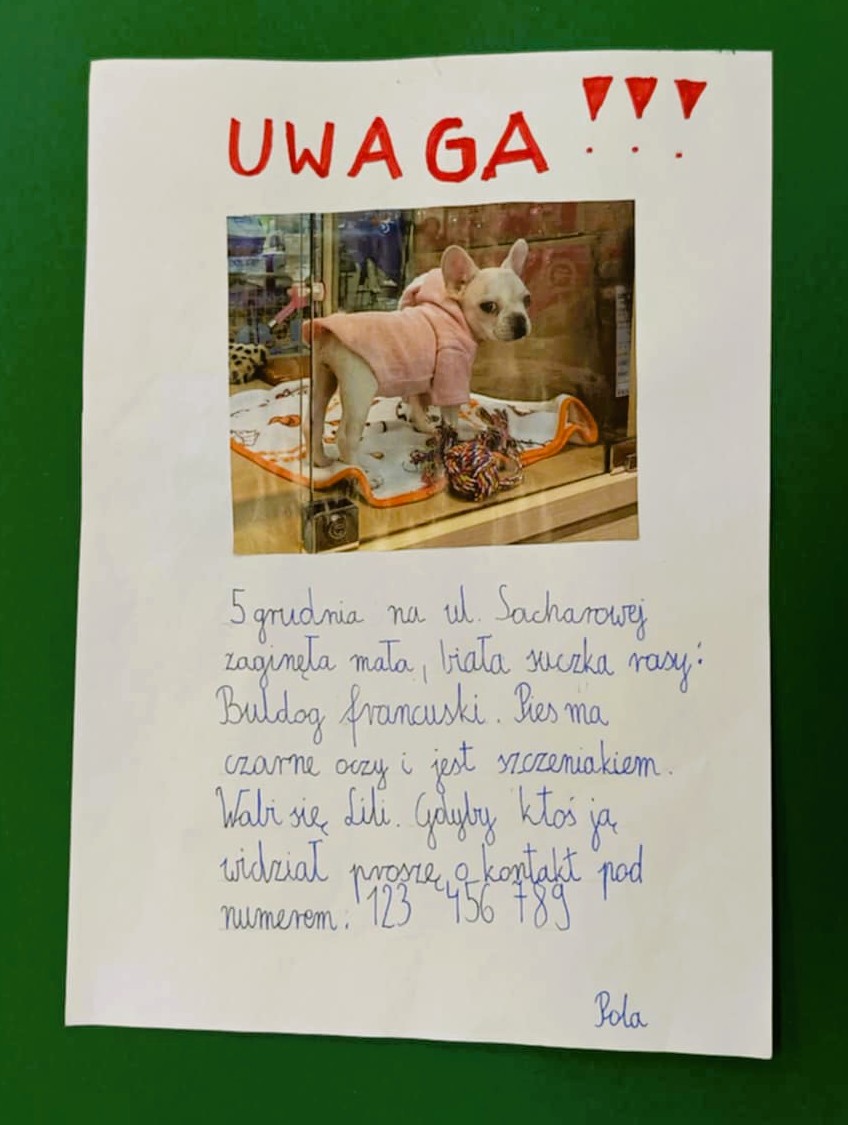 UWAGA !!!
5 grudnia na ul. Sacharowej
zaginęła mała, biała suczka rasy:
Buldog francuski. Pies ma
czarne oczy i jest szczeniakiem.
Wabi się Lili. Gdyby ktoś ją
widział proszę o kontakt pod
numerem: 123 456 789
Pola